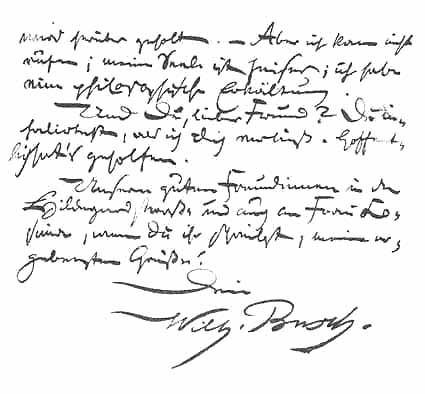 wird herüber geholt. – Aber ich kann nicht
rufen; meine Seele ist heiser; ich habe
eine philosophische Erkältung.
Und Du, lieber Freund? Du in-
haliertest, als ich dich verließ. Hoffent-
lich hat's geholfen.
Unsern guten Freundinnen in der
Hildegardstraße und auch an Frau
wenn Du ihr schreibst, meine er-
gebensten Grüße!
Dein
Wilh. Busch.